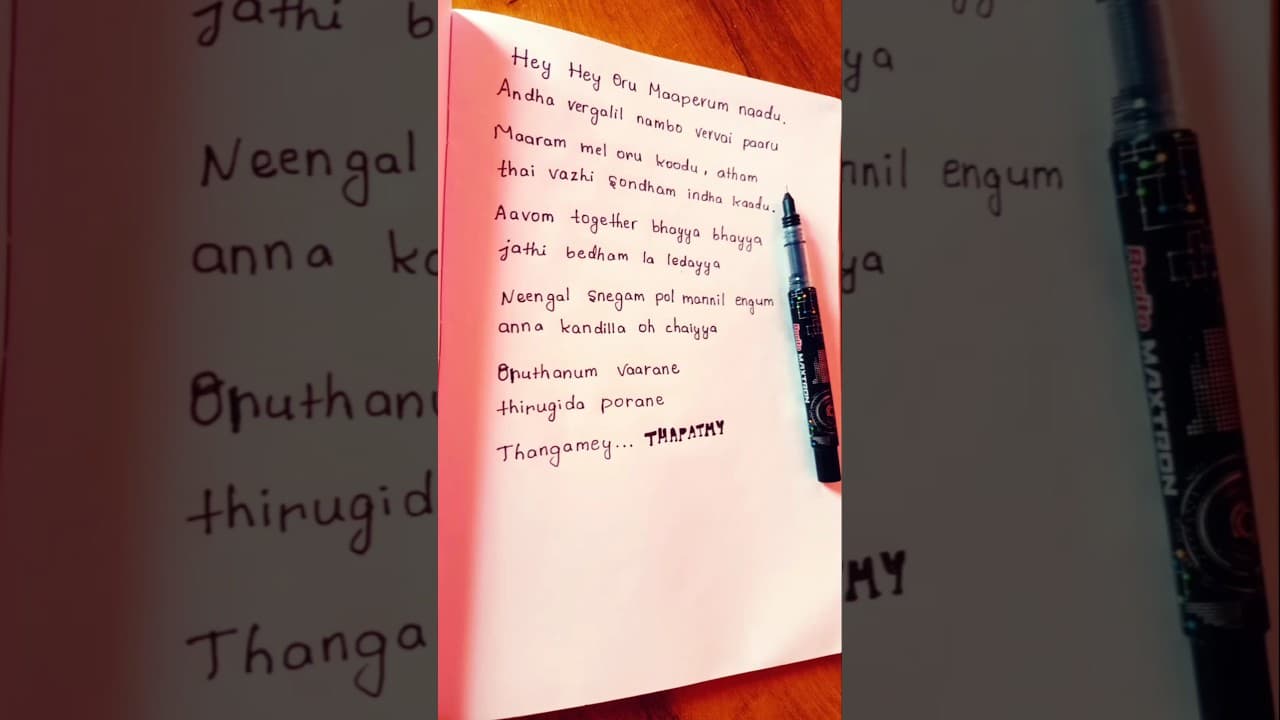 Hey Hey Oru Maaperum naadu.
Andha vergalil nambo vervai paaru
Maaram mel oru koodu, atham
thai vazhi sondham indha kaadu.
Aavom together bhayya bhayya
jathi bedham la ledayya
Neengal snegam pol mannil engum
anna kandilla oh chaiyya
Oruthanum vaarane
thirugida porane
Thangamey... THAPATHY
MAXTRON